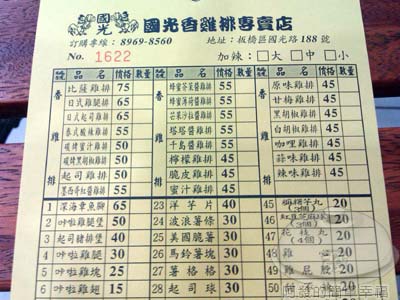 國光 國光香雞排專賣店
訂購專線：8969-8560 地址：板橋區國光路188號
No. 1622 加辣：□大 □中 □小
編號 品名 價格 數量 編號 品名 價格 數量 編號 品名 價格 數量
香雞排 香雞排 香雞排
比薩雞排 75 蜂蜜芥茉醬雞排 55 原味雞排 45
日式雞腿排 65 蜂蜜薄荷醬雞排 55 甘梅雞排 45
日式起司雞排 65 芒果沙拉醬雞排 55 黑胡椒雞排 45
泰式酸辣雞排 55 塔塔醬雞排 55 白胡椒雞排 45
碳烤蜜汁雞排 50 千島醬雞排 55 咖哩雞排 45
碳烤黑胡椒雞排 50 檸檬雞排 45 蒜味雞排 45
起司雞排 50 脆皮雞排 45 辣味雞排 45
墨西哥紅醬雞排 55 蜜汁雞排 45
1 深海章魚腳 65 23 洋芋片 40 45 20
2 咔啦雞腿堡 50 24 波浪薯條 30 46 20
3 起司豬排堡 40 25 美國脆薯 30 47 花枝丸(4個) 20
4 咔啦雞腿 50 26 馬鈴薯塊 30 48 20
5 咔啦雞塊 25 27 薯格格 30 49 雞屁股 20
6 咔啦雞翅 15 28 起司球 30 50 20